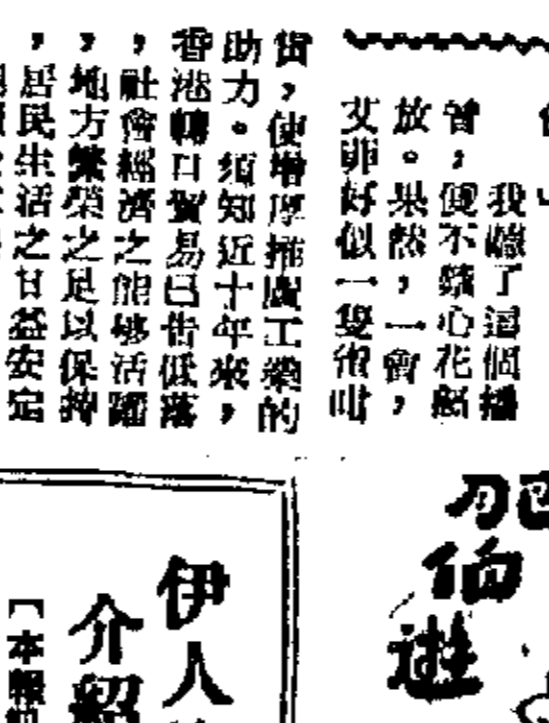 我聽了這個播
會，便不禁心花怒
放。果然，一會，
艾菲好似一隻
貨，使增厚推廣工業的
助力。須知近十年來，
香港轉口貿易已告低落
，社會經濟之能够活躍
，地方繁榮之足以保持
，居民生活之日益安定
伊人
介紹
【本報